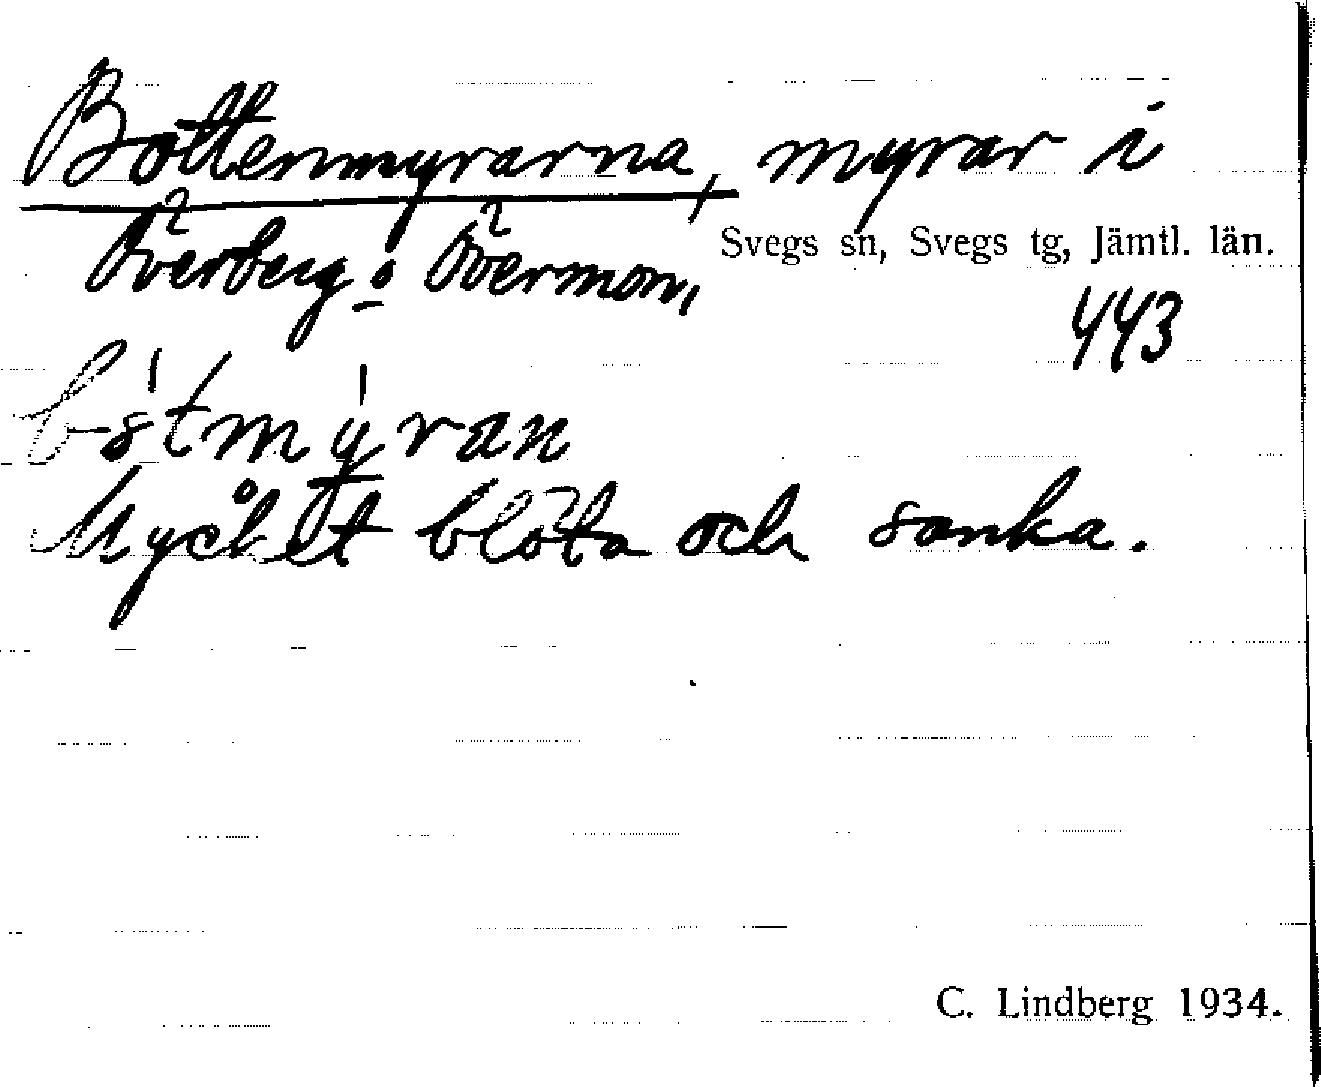 Bottenmyrarna, myrar i
Överberg o Övermon,
Svegs sn, Svegs tg, Jämtl. län.
443
Mycket blöta och sanka.
C. Lindberg 1934.